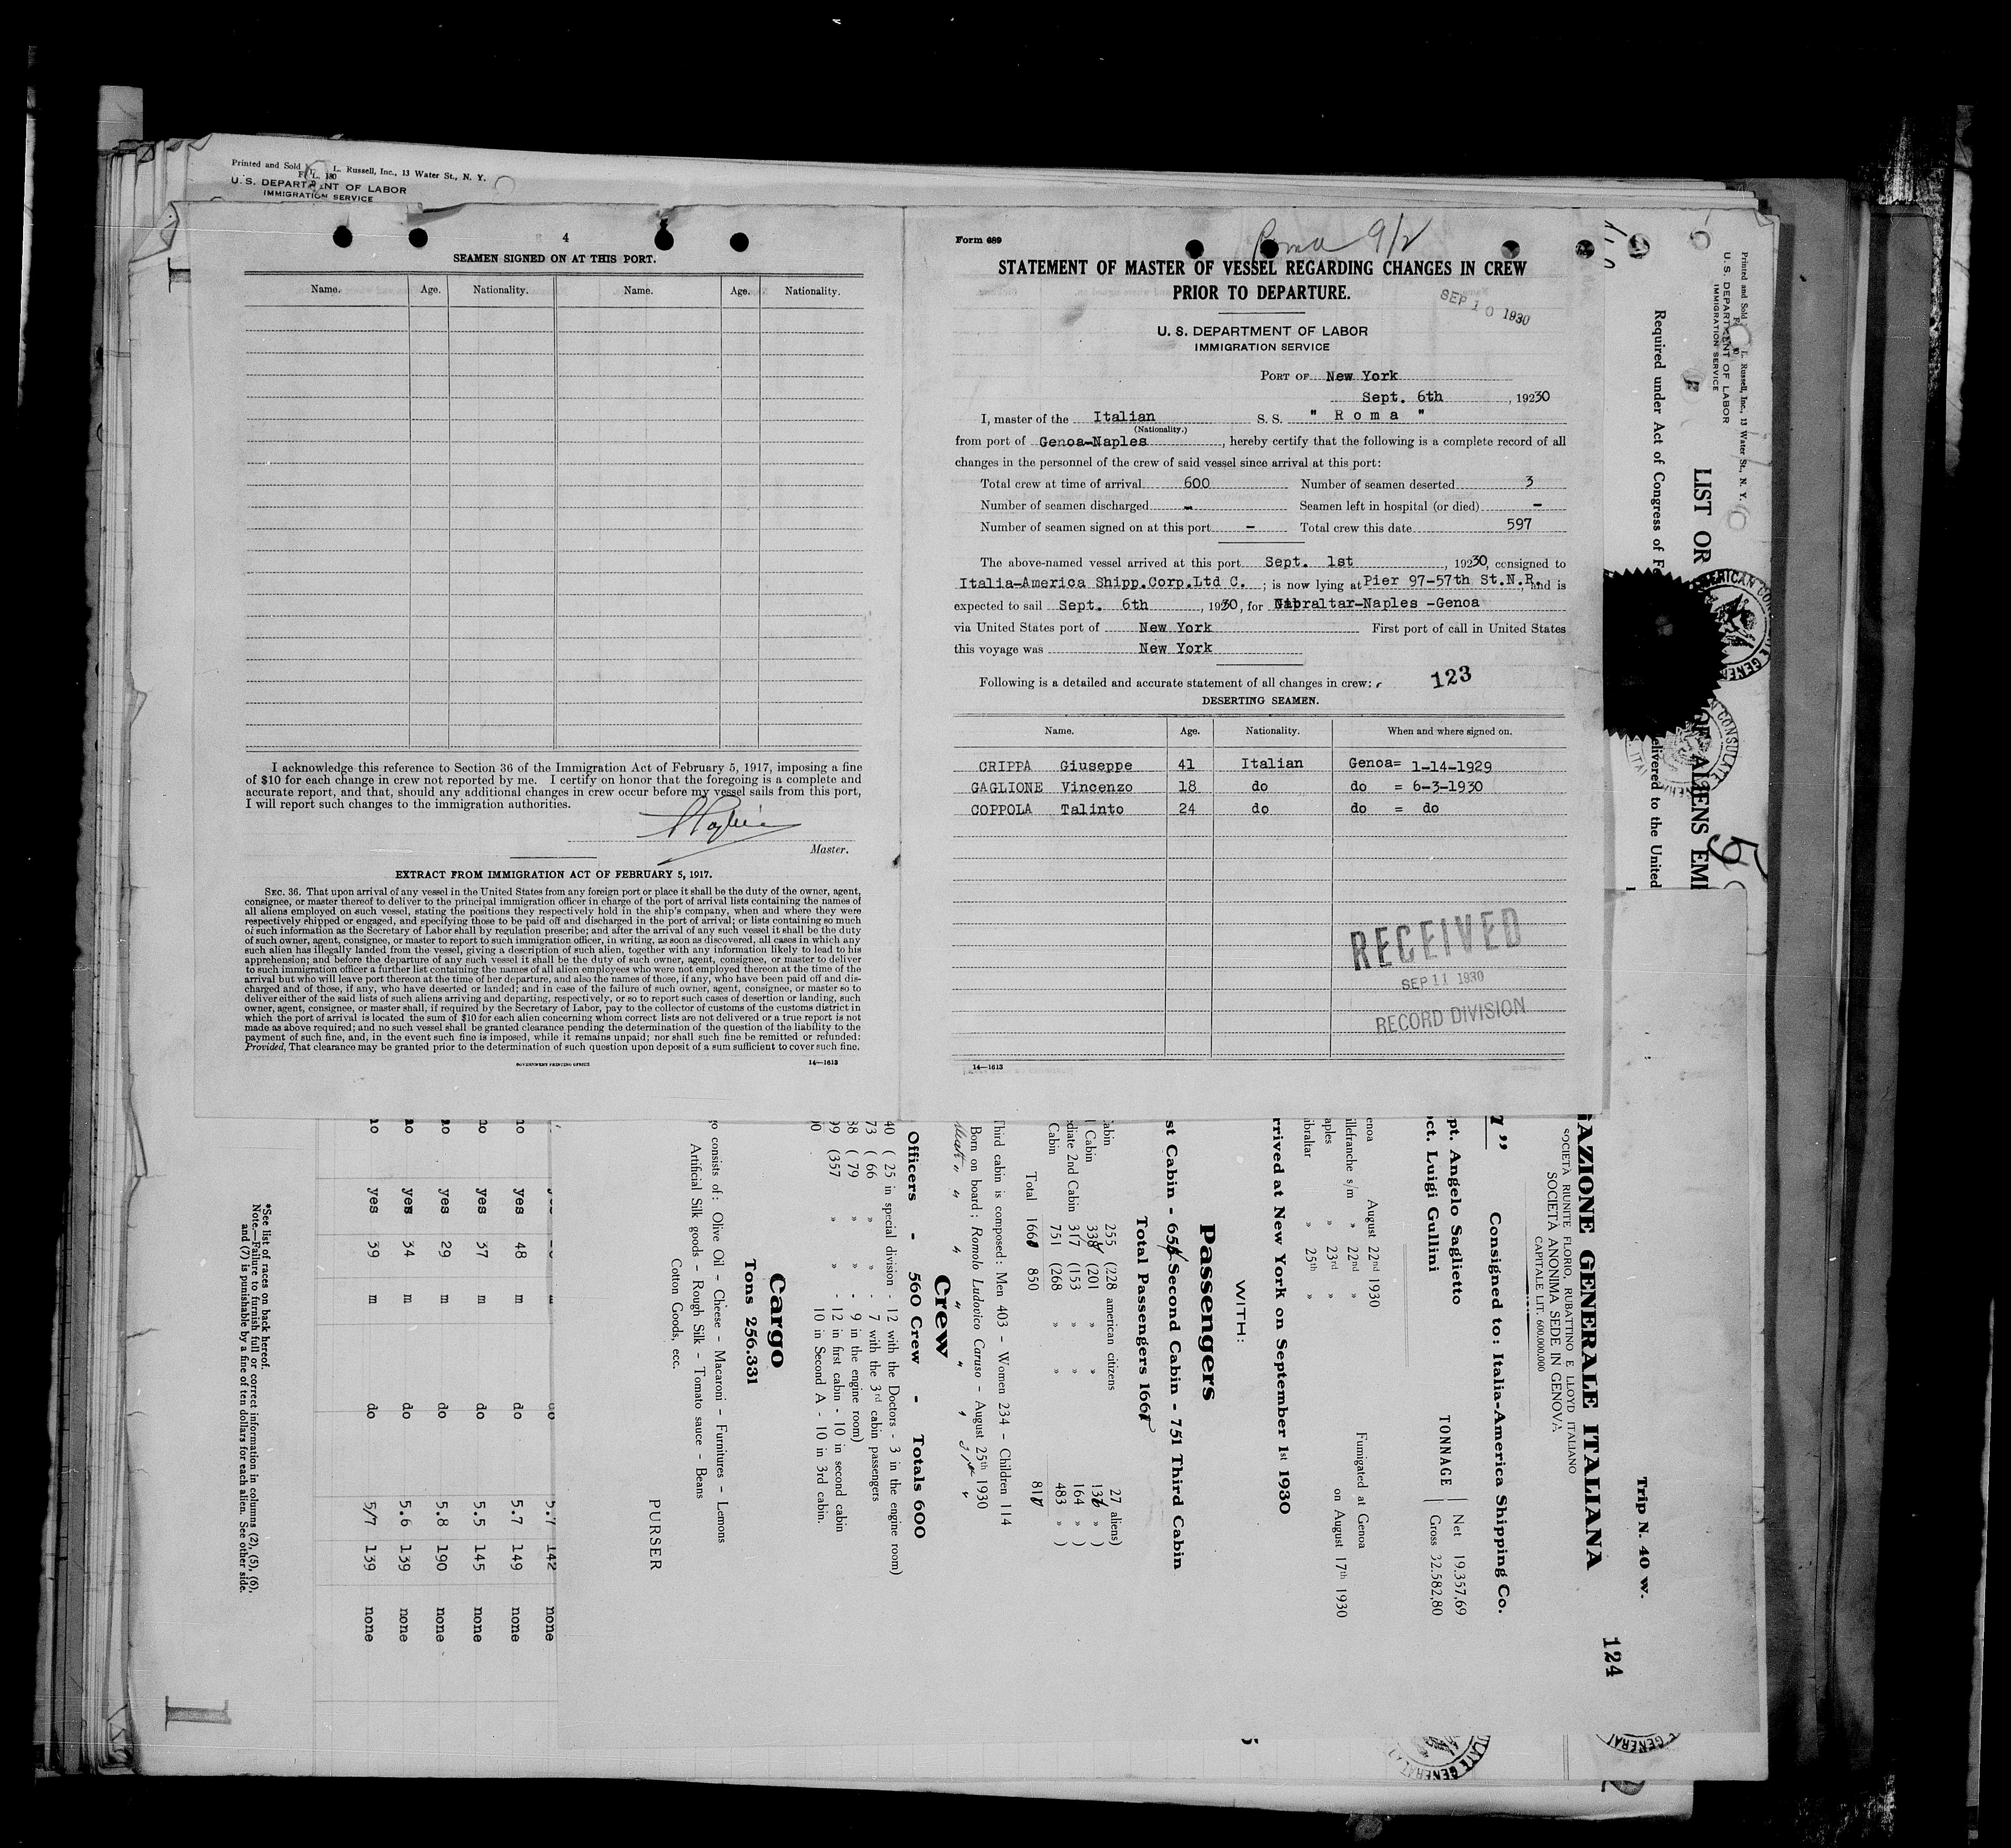 Printed and Sold L. Russell, Inc., 13 Water St., N. Y.
U. S. DEPARTMENT OF LABOR
IMMIGRATION SERVICE
4
SEAMEN SIGNED ON AT THIS PORT.
Name. Age. Nationality. Name. Age. Nationality.
I acknowledge this reference to Section 36 of the Immigration Act of February 5, 1917, imposing a fine
of $10 for each change in crew not reported by me. I certify on honor that the foregoing is a complete and
accurate report, and that, should any additional changes in crew occur before my vessel sails from this port,
I will report such changes to the immigration authorities.
Master.
EXTRACT FROM IMMIGRATION ACT OF FEBRUARY 5, 1917.
SEC. 36. That upon arrival of any vessel in the United States from any foreign port or place it shall be the duty of the owner, agent,
consignee, or master thereof to deliver to the principal immigration officer in charge of the port of arrival lists containing the names of
all aliens employed on such vessel, stating the positions they respectively hold in the ship's company, when and where they were
respectively shipped or engaged, and specifying those to be paid off and discharged in the port of arrival; or lists containing so much
of such information as the Secretary of Labor shall by regulation prescribe; and after the arrival of any such vessel it shall be the duty
of such owner, agent, consignee, or master to report to such immigration officer, in writing, as soon as discovered, all cases in which any
such alien has illegally landed from the vessel, giving a description of such alien, together with any information likely to lead to his
apprehension; and before the departure of any such vessel it shall be the duty of such owner, agent, consignee, or master to deliver
to such immigration officer a further list containing the names of all alien employees who were not employed thereon at the time of the
arrival but who will leave port thereon at the time of her departure, and also the names of those, if any, who have been paid off and dis-
charged and of those, if any, who have deserted or landed; and in case of the failure of such owner, agent, consignee, or master so to
deliver either of the said lists of such aliens arriving and departing, respectively, or so to report such cases of desertion or landing, such
owner, agent, consignee, or master shall, if required by the Secretary of Labor, pay to the collector of customs of the customs district in
which the port of arrival is located the sum of $10 for each alien concerning whom correct lists are not delivered or a true report is not
made as above required; and no such vessel shall be granted clearance pending the determination of the question of the liability to the
payment of such fine, and, in the event such fine is imposed, while it remains unpaid; nor shall such fine be remitted or refunded:
Provided, That clearance may be granted prior to the determination of such question upon deposit of a sum sufficient to cover such fine.
GOVERNMENT PRINTING OFFICE 14—1613
Form 689
Roma 9/2
STATEMENT OF MASTER OF VESSEL REGARDING CHANGES IN CREW
PRIOR TO DEPARTURE.
SEP 10 1930
U. S. DEPARTMENT OF LABOR
IMMIGRATION SERVICE
PORT OF New York
Sept. 6th, 1930
I, master of the Italian S. S. " Roma "
(Nationality.)
from port of Genoa-Naples, hereby certify that the following is a complete record of all
changes in the personnel of the crew of said vessel since arrival at this port:
Total crew at time of arrival 600 Number of seamen deserted 3
Number of seamen discharged - Seamen left in hospital (or died) -
Number of seamen signed on at this port - Total crew this date 597
The above-named vessel arrived at this port Sept. 1st, 1930, consigned to
Italia-America Shipp.Corp.Ltd C.; is now lying at Pier 97-57th St.N.R., and is
expected to sail Sept. 6th, 1930, for Gibraltar-Naples -Genoa
via United States port of New York First port of call in United States
this voyage was New York
Following is a detailed and accurate statement of all changes in crew:
123
DESERTING SEAMEN.
Name. Age. Nationality. When and where signed on.
CRIPPA Giuseppe 41 Italian Genoa= 1-14-1929
GAGLIONE Vincenzo 18 do do = 6-3-1930
COPPOLA Talinto 24 do do = do
RECEIVED
SEP 11 1930
RECORD DIVISION
14—1613
Printed and Sold L. Russell, Inc., 13 Water St., N. Y.
U. S. DEPARTMENT OF LABOR
IMMIGRATION SERVICE
LIST OR
OF ALIENS EMP
Required under Act of Congress of Fe
elivered to the United
Trip N. 40 w.
124
AZIONE GENERALE ITALIANA
SOCIETÀ RIUNITE FLORIO, RUBATTINO E LLOYD ITALIANO
SOCIETÀ ANONIMA SEDE IN GENOVA
CAPITALE LIT. 600,000,000
Consigned to: Italia-America Shipping Co.
pt. Angelo Saglietto
ct. Luigi Gullini
TONNAGE
Net 19.357,69
Gross 32.582,80
enoa August 22nd 1930
illefranche s/m » 22nd »
aples » 23rd »
ibraltar » 25th »
Fumigated at Genoa
on August 17th 1930
rrived at New York on September 1st 1930
WITH:
Passengers
st Cabin - 655 Second Cabin - 751 Third Cabin
Total Passengers 1661
abin 255 (228 american citizens 27 aliens)
Cabin 338 (201 » » 136 » )
diate 2nd Cabin 317 (153 » » 164 » )
Cabin 751 (268 » » 483 » )
Total 1661 850 811
Third cabin is composed: Men 403 - Women 234 - Children 114
Born on board: Romolo Ludovico Caruso - August 25th 1930
Crew
Officers - 560 Crew - Totals 600
40 ( 25 in special division - 12 with the Doctors - 3 in the engine room)
73 ( 66 » » - 7 with the 3rd cabin passengers
88 ( 79 » » - 9 in the engine room)
99 (357 » » - 12 in first cabin - 10 in second cabin
10 in Second A - 10 in 3rd cabin.
Cargo
Tons 256.331
go consists of: Olive Oil - Cheese - Macaroni - Furnitures - Lemons
Artificial Silk goods - Rough Silk - Tomato sauce - Beans
Cotton Goods, ecc.
PURSER
5.7 142 none
no yes 48 m do 5.7 149 none
no yes 37 m do 5.5 145 none
no yes 29 m do 5.8 190 none
no yes 34 m do 5.6 139 none
no yes 39 m do 5/7 139 none
*See list of races on back hereof.
Note.—Failure to furnish full or correct information in columns (2), (5), (6),
and (7) is punishable by a fine of ten dollars for each alien. See other side.